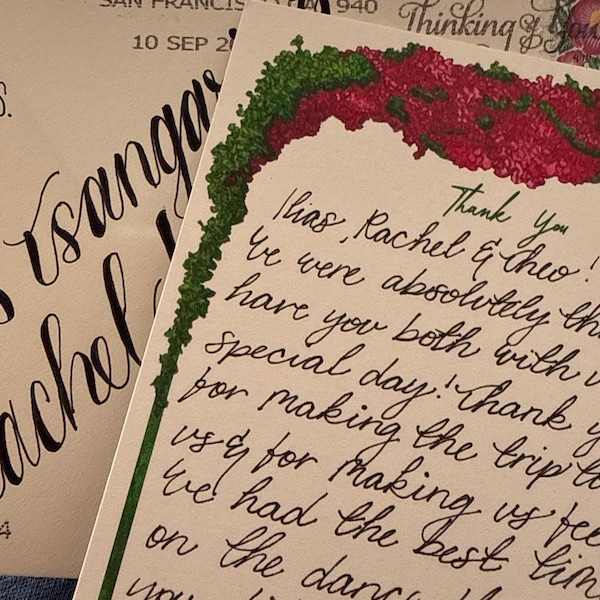 SAN FRANCISCO CA 940
10 SEP 2
Thinking of You
s.
Tsangar
Rachel
4
Thank You
Ilias, Rachel & Theo!
We were absolutely th
have you both with u
special day! Thank y
for making the trip to
us & for making us fee
We had the best tim
on the danc
you